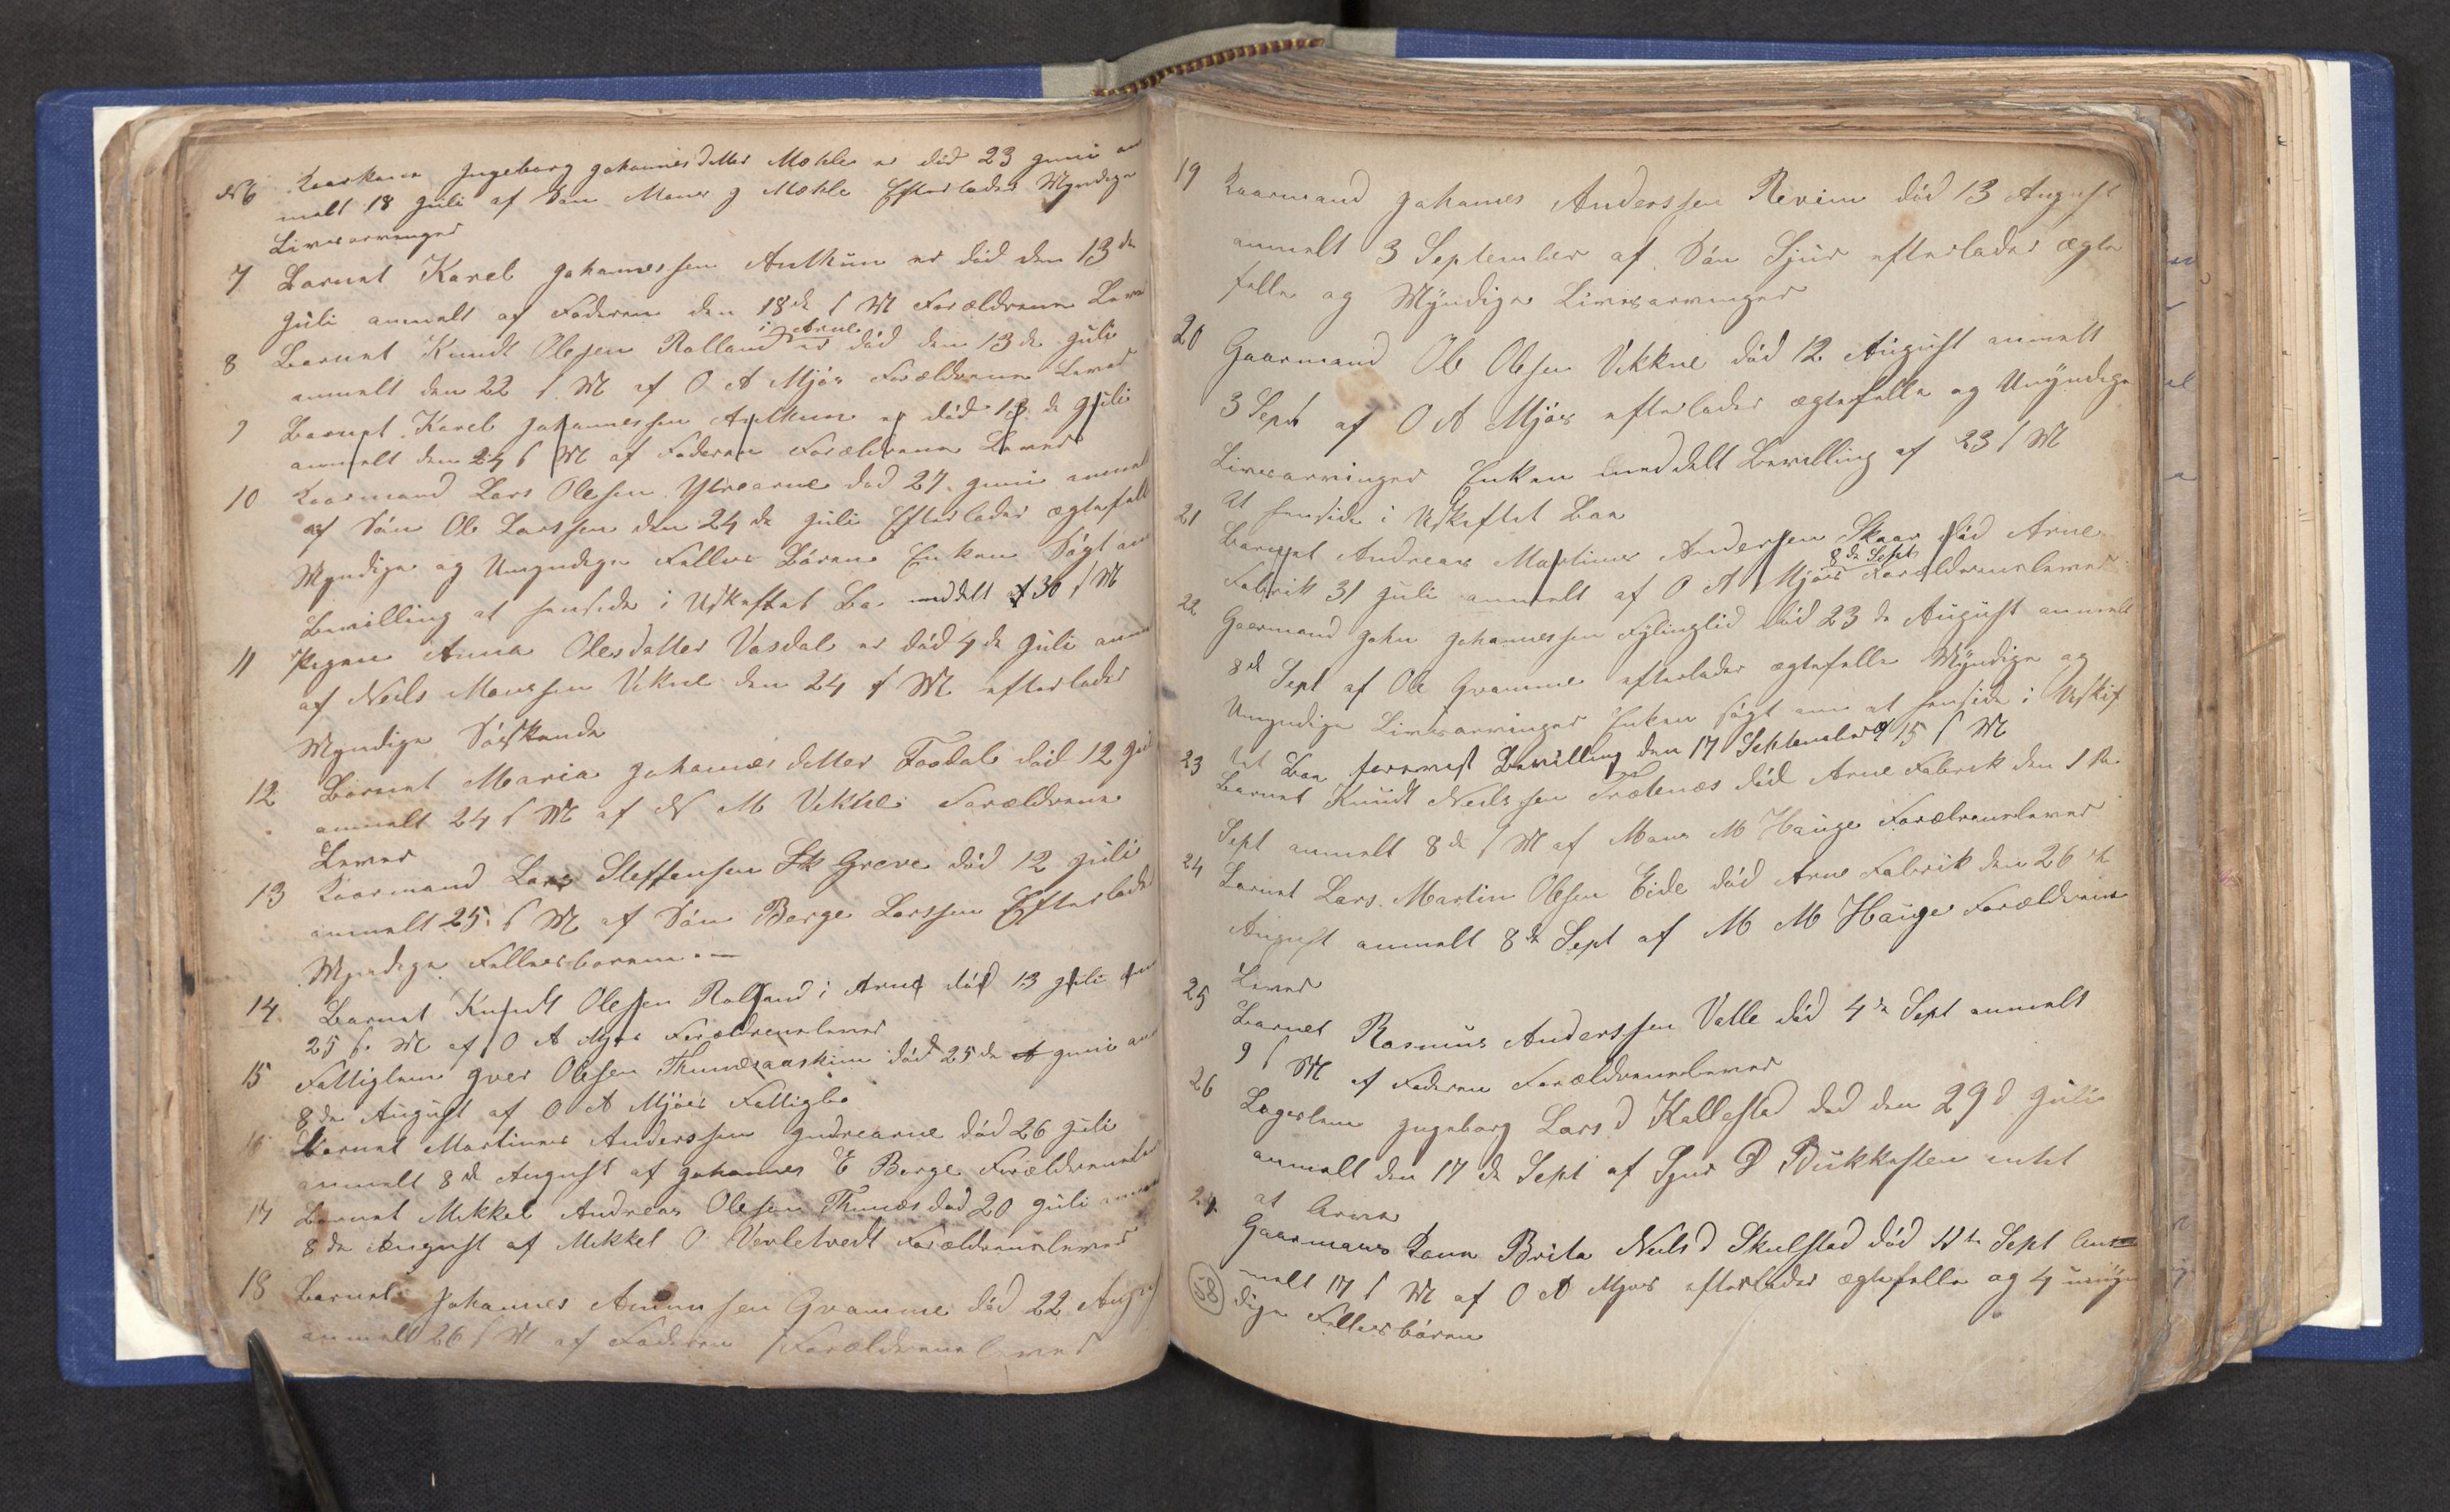 N 6 Kaarkone Ingeborg Johannesdatter Mæhle er död 23 Juni an
melt 18 Juli af Sön Mons J Mæhle Efterlader Myndige
Livsarvinger
7 Barnet Karel Johannessen Anthun er död den 13de
Juli anmelt af Faderen den 18de s M Forældrene Lever
8 Barnet Knudt Olesen Rolland i Arne er död den 13de Juli
anmelt den 22 s M af O A Mjös Forældrene Lever
9 Barnet Karel Johannessen Anthun er död 13de Juli
anmelt den 24 s M af Faderen Forældrene Lever
10 Kaarmand Lars Olesen Ytrearne död 27 Juni anmelt
af Sön Ole Larssen den 24de Juli Efterlader ægtefelle
Myndige og Umyndige Felles Börn Enken Sögt om
Bevilling at hensidde i Uskiftet Bo meddelt af 30 s M
11 Pigen Anna Olesdatter Vasdal er död 4de Juli anm
af Neils Monssen Vikne den 24 s M efterlader
Myndige Söskende
12 Barnet Maria Johannesdatter Fosdal död 12 Juli
anmelt 24 s M af N M Vikne Forældrene
Lever
13 Kaarmand Lars Steffensen Sk Greve död 12 Juli
anmelt 25 s M af Sön Berge Larssen Efterlader
Myndige Fellesborn. —
14 Barnet Knudt Olesen Rolland i Arne död 13 Juli anm
25 s M af O A Mjös Forældrene lever
15 Fattiglem Iver Olesen Thunesaaskim död 25de A Juni an
8de August af O A Mjös Fattigl.
16 Barnet Martines Anderssen Indrearne död 26 Juli
anmelt 8de August af Johannes E Berge Forældrene lever
17 Barnet Mikkel Andreas Olesen Thunes död 20 Juli anm
8de August af Mikkel O Verletvedt Forældrene lever
18 Barnet Johannes Amunsen Gramme död 22 August
anmelt 26 s M af Faderen Forældrene lever
19 Kaarmand Johannes Anderssen Revim död 13 August
anmelt 3 September af Sön Sjur efterlader ægte
felle og Myndige Livsarvinger
20 Gaarmand Ole Olsen Vikkne död 12 August anmelt
3 Sept af O A Mjös efterlader ægtefelle og Umyndige
Livsarvinger Enken meddelt Bevilling af 23 s M
At hensidde i Uskiftet Boe
21 Barnet Andreas Martines Andersen Skaar död Arne
Fabrik 31 Juli anmelt af O A Mjös 8de Sept Forældrene lever
22 Gaarmand John Johannessen Fylinglid död 23de August anmelt
8de Sept af Ole Gramme efterlader ægtefelle Myndige og
Umyndige Livsarvinger Enken sögt om at hensidde i Uskif
tet Boe Bevilling den 17 September 15 s M
23 Barnet Knudt Neilssen Trætenæs död Arne Fabrik den 1ste
Sept anmelt 8de s M af Mons M Hauge Forældrene lever
24 Barnet Lars Martin Olsen Eide död Arne Fabrik den 26de
August anmelt 8de Sept af M M Hauge Forældrene
Lever
25 Barnet Rasmus Anderssen Valle död 4de Sept anmelt
9 s M af Faderen Forældrene lever
26 Lægeslem Ingeborg Lars d Kallestad död den 29d Juli
anmelt den 17de Sept af Sjur D Bukkesten intet
at Arve
27 Gaarmans Kone Brita Neils d Skulstad död 11te Sept An
melt 17 s M af O A Mjös efterlader ægtefelle og 4 umyn
58 dige Fellesbörn